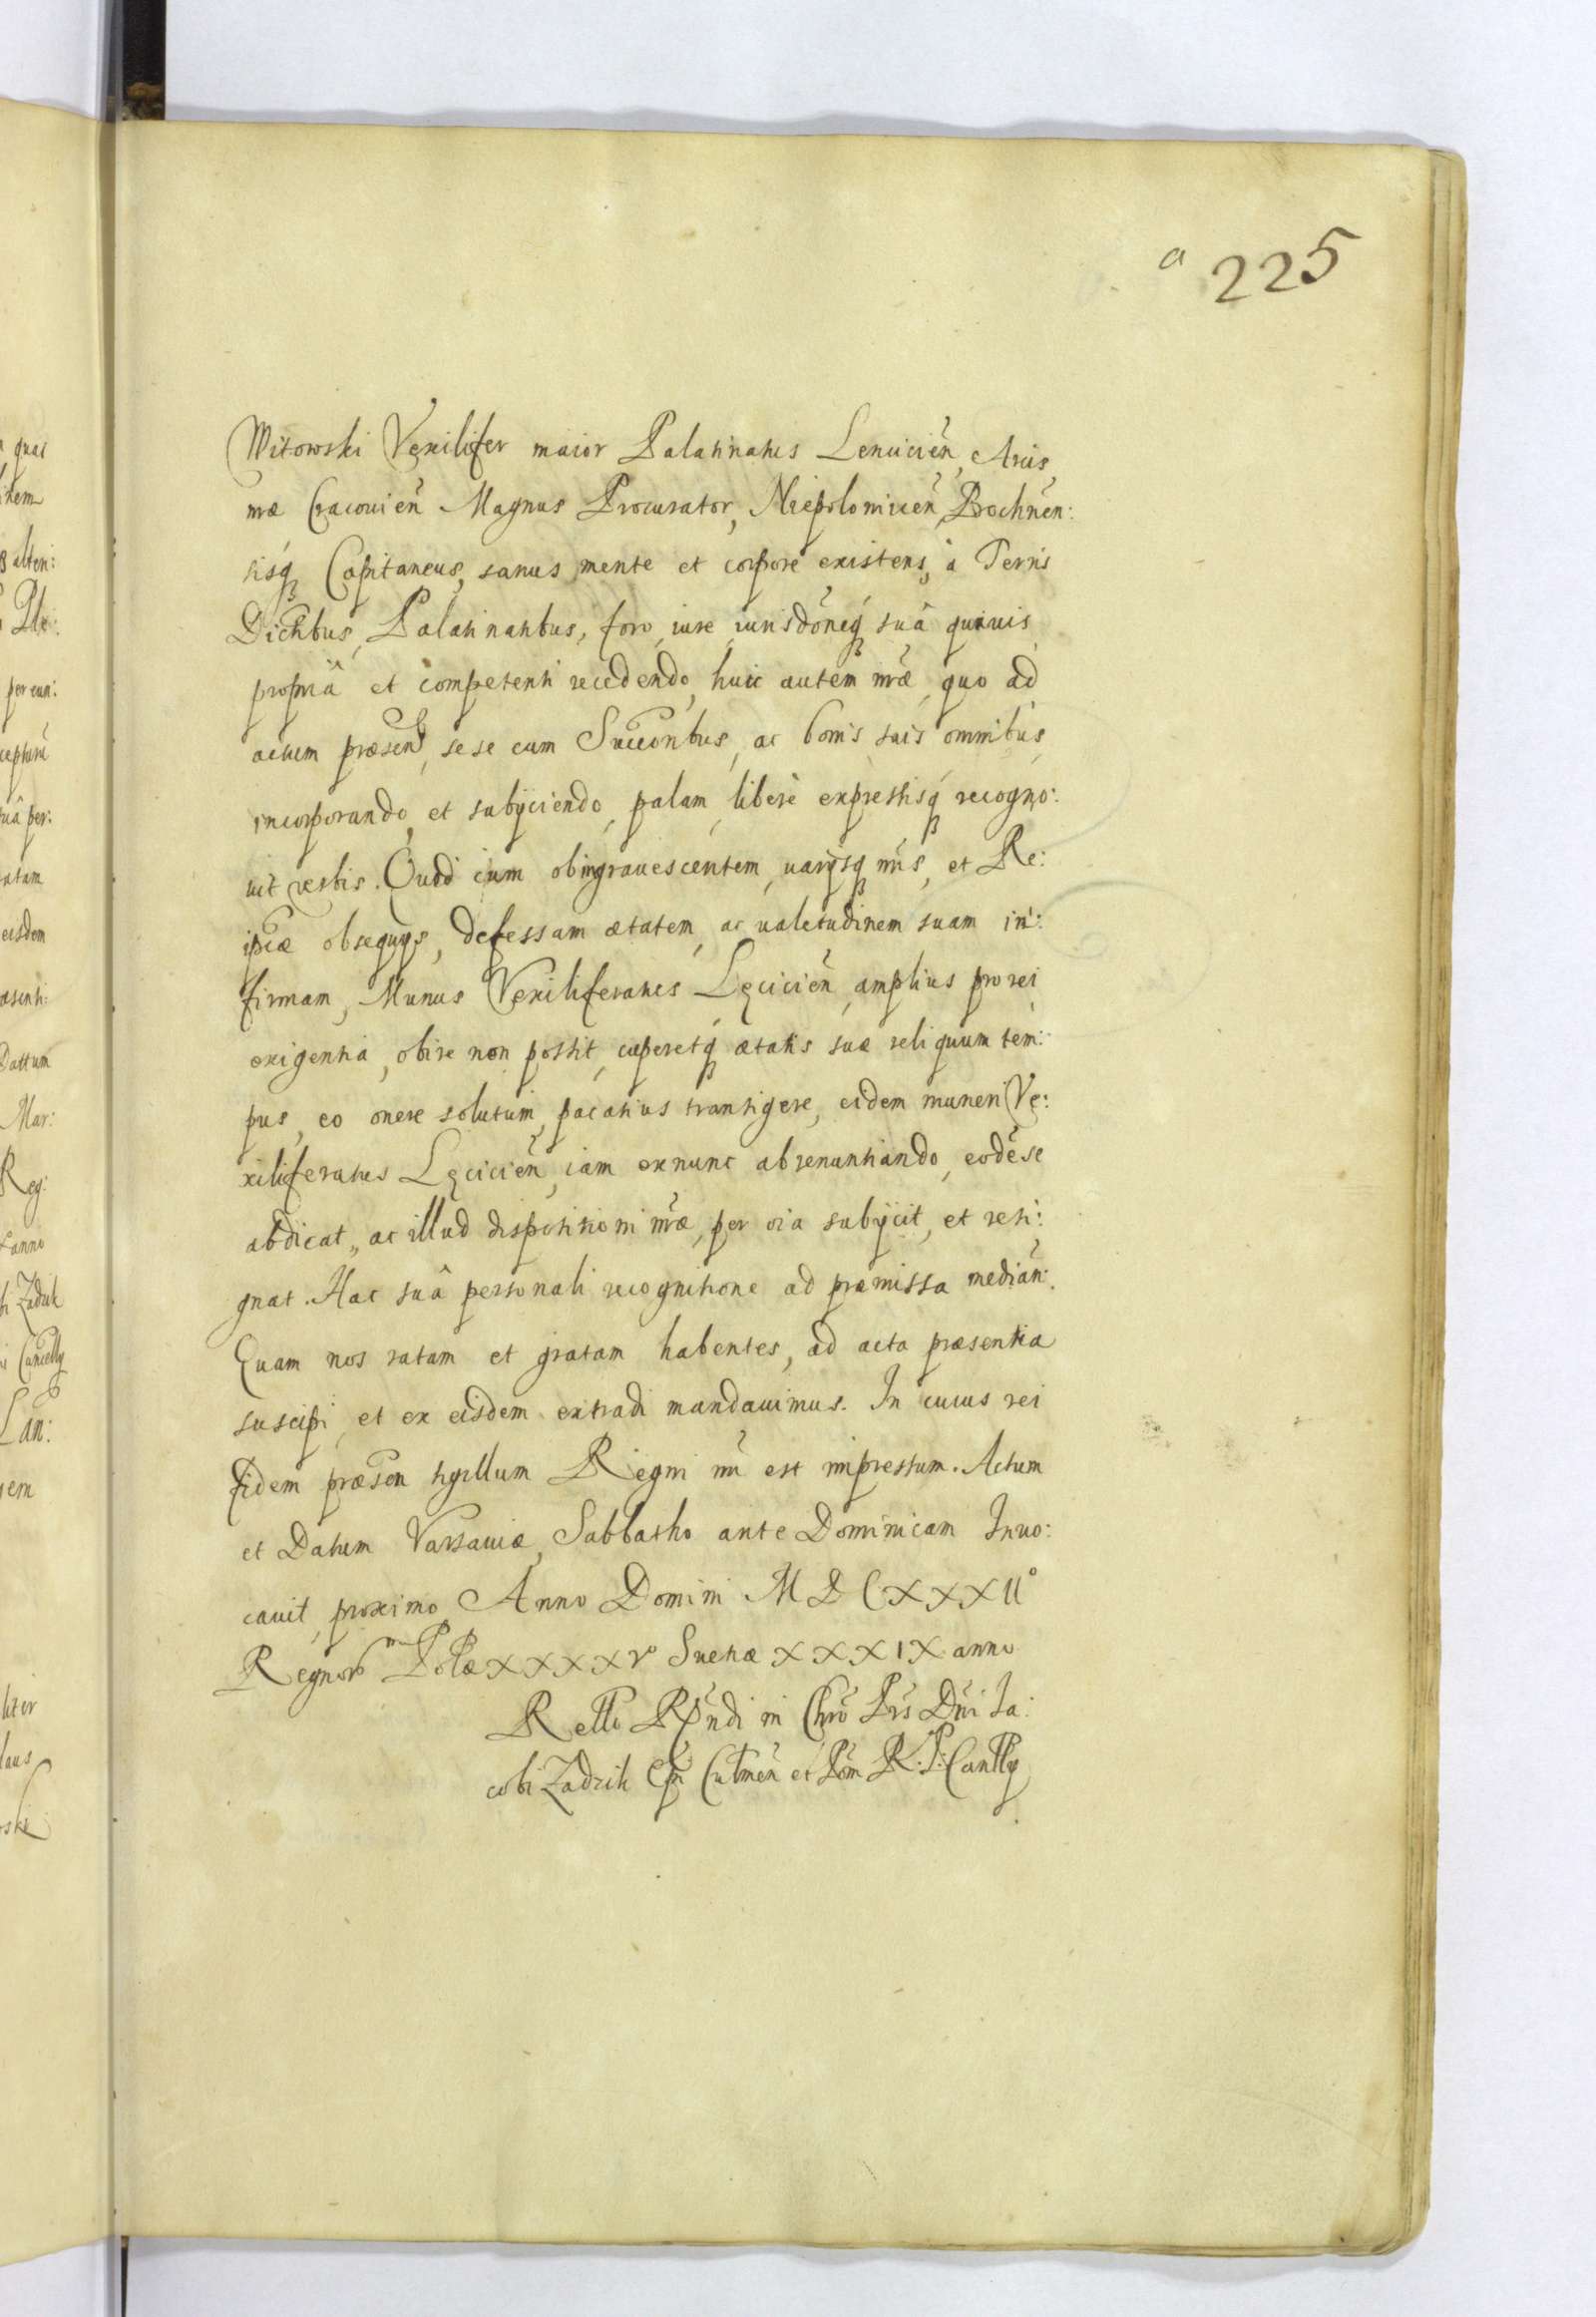 a 225
Witowski Vexilifer maior Palatinatus Lenicień, Arcis
nræ Cracouień Magnus Procurator, Niepolomiceń, Bochneń:
sisq̃ Capitaneus, sanus mente et corpore existens, à Terris
Dictibus, Palatinatibus, foro, iure, iurisdõneq̃ suâ quauis
propriâ et competenti recedendo, huic autem nræ, quo ad
actum præsen, sese cum Succoribus, ac bonis suis omnibus
incorporando, et subijciendo, palam, liberè expressisq̃ recogno:
uit verbis. Quod cum obingrauescentem, varijsq̃ nris, et Re:
ipcæ obsequijs, defessam ætatem, ac ualetudinem suam in:
firmam, Munus Vexiliferatus Lęcicień, amplius pro rei
exigentia, obire non possit, cuperetq̃ ætatis suæ reliquum tem:
pus, eo onere solutum, pacatius transigere, eidem muneri Ve:
xiliferatus Lęcicień, iam exnunc abrenuntiando, eodẽ se
abdicat, ac illud dispositioni nræ, per oia subijcit, et resi:
gnat. Hac suâ personali recognitione ad præmissa median:
Quam nos ratam et gratam habentes, ad acta præsentia
suscipi, et ex eisdem extradi mandauimus. In cuius rei
fidem præsen sigillum Regni nri est impressum. Actum
et Datum Varsauiæ, Sabbatho ante Dominicam Inuo:
cauit, proximo Anno Domini M D C X X X II°
Regnorũ Polæ X X X X V Sueciæ X X X I X anno
Rello Rṽndi in Chrõ Pris Dñi Ia:
cobi Zadzik Epi Culmeń et Pom R. P. Canlly